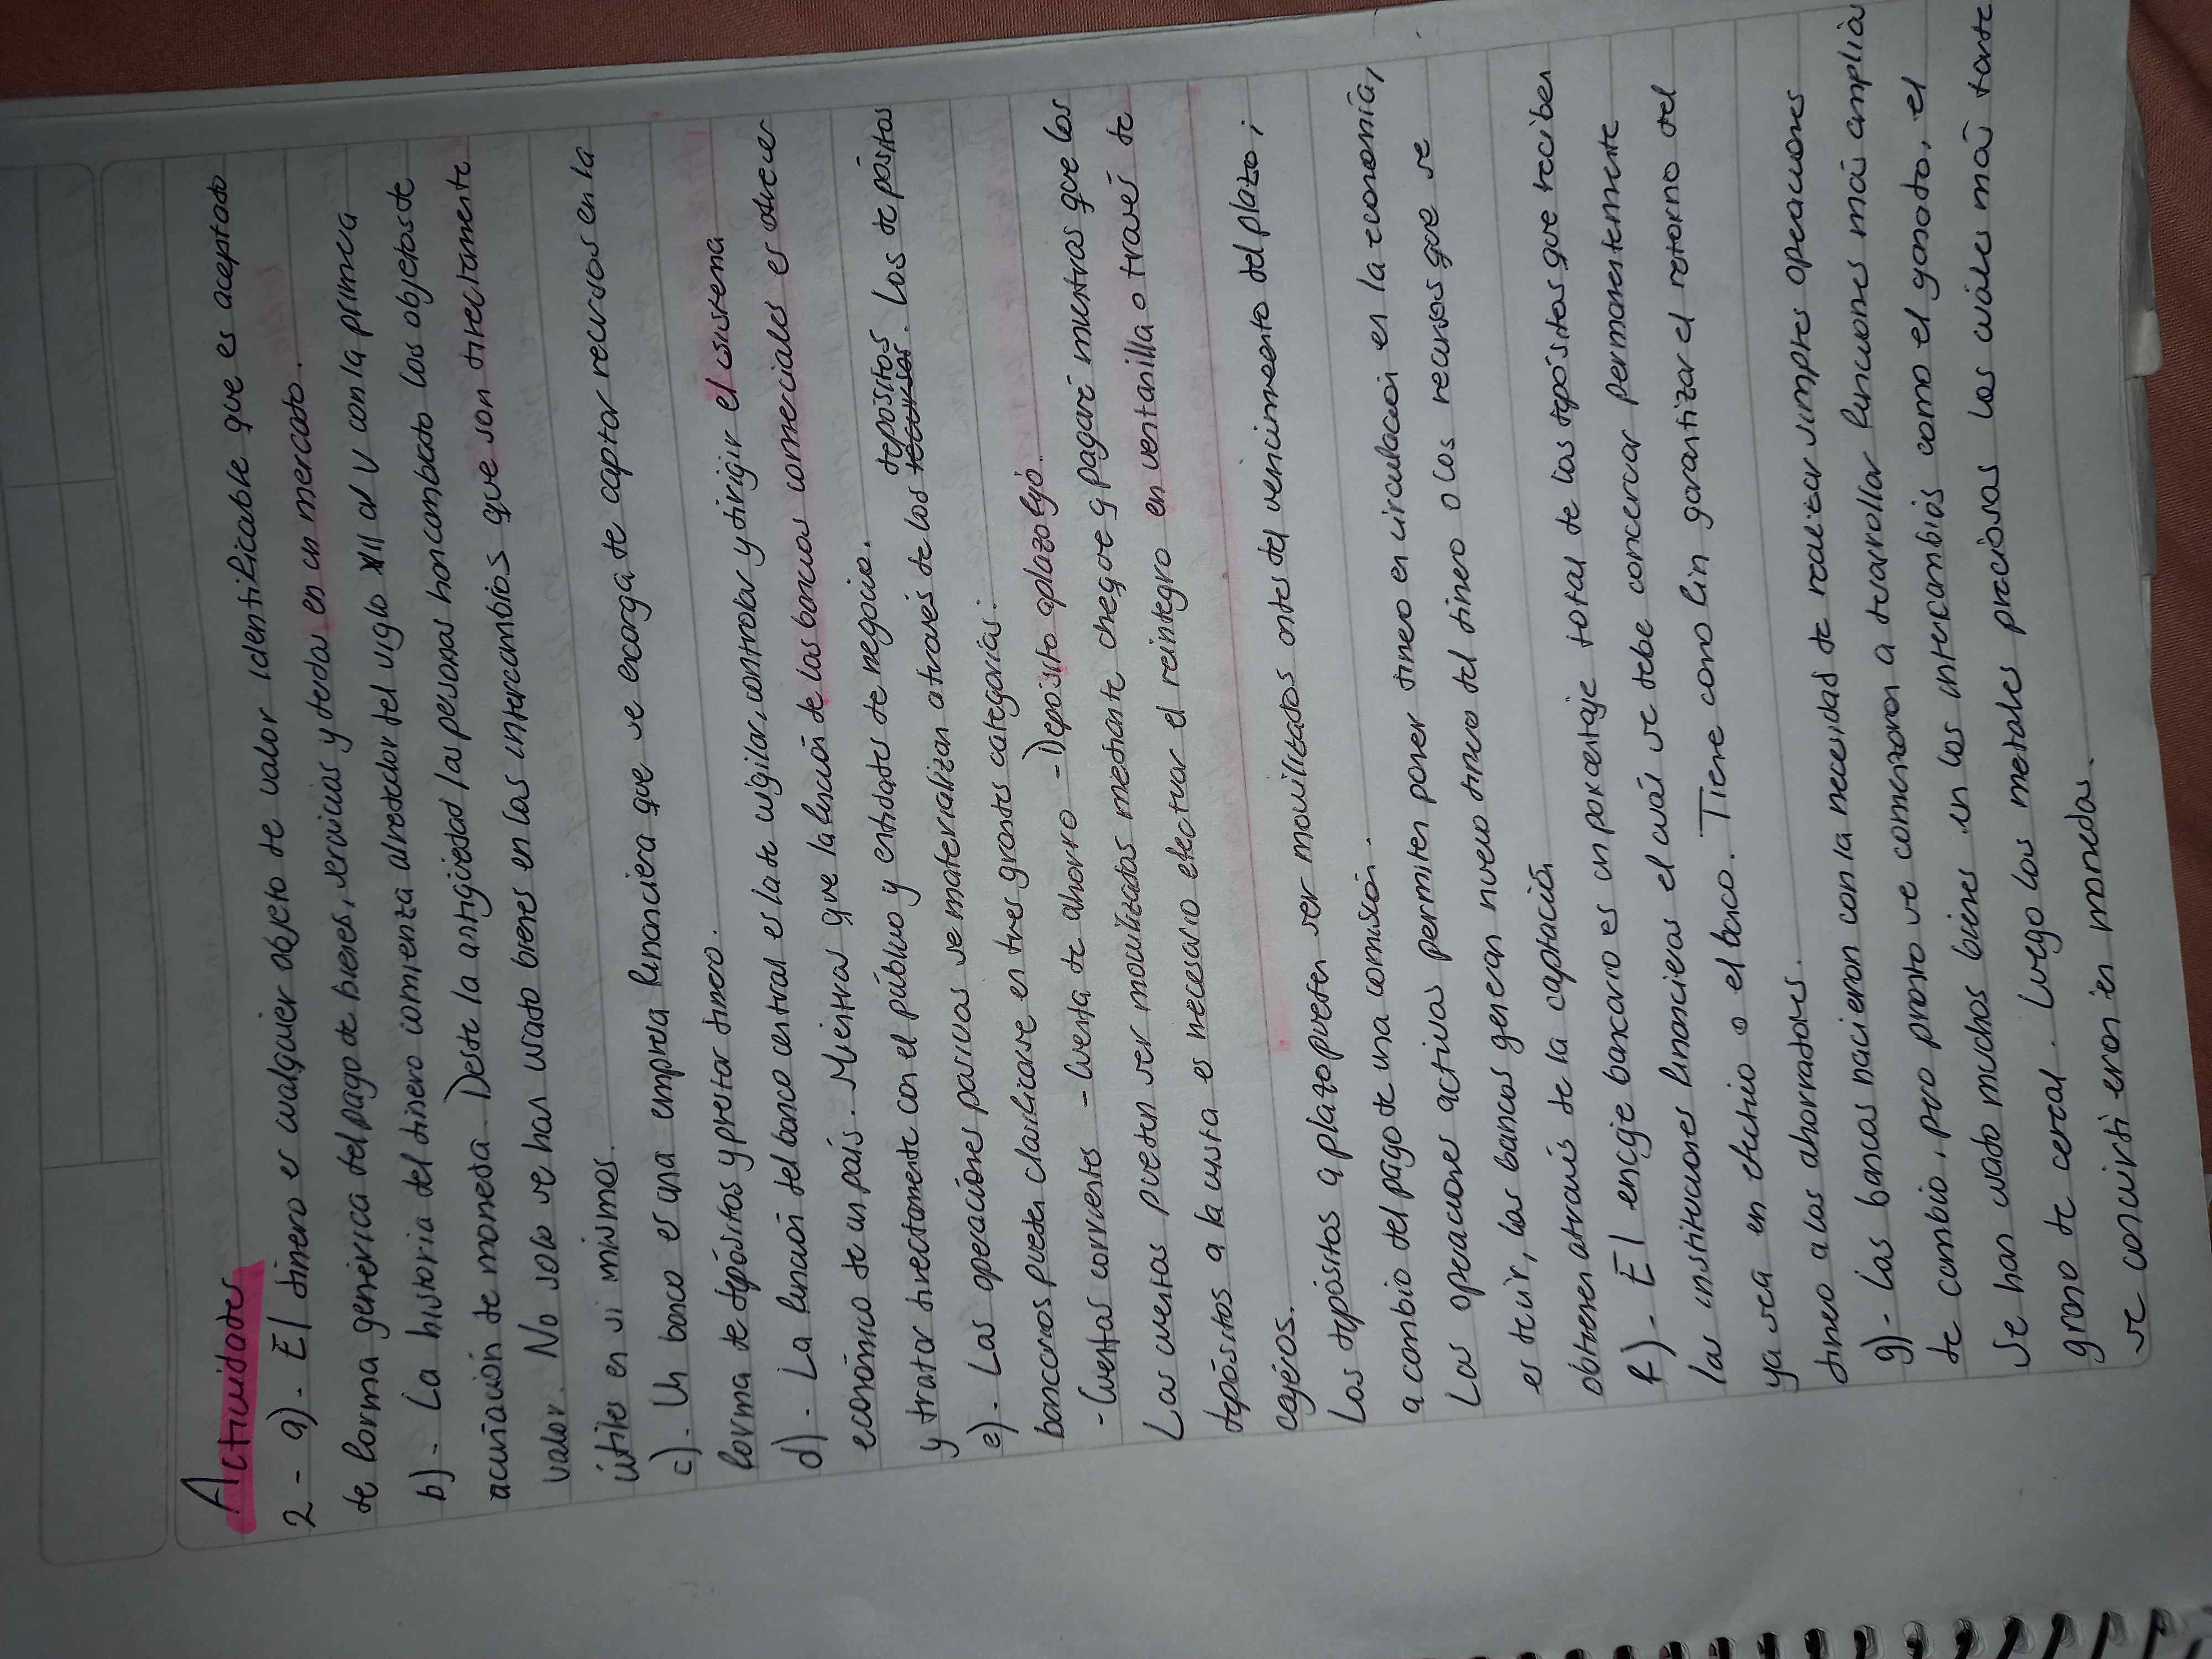 Actividades
2 - a) - El dinero es cualquier objeto de valor identificable que es aceptado
de forma genérica del pago de bienes, servicios y deudas en un mercado.
b) - La historia del dinero comienza alrededor del siglo XII al V con la primera
acuñación de moneda. Desde la antigüedad las personas han cambiado los objetos de
valor. No solo se has usado bienes en los intercambios que son directamente
útiles en si mismos.
c) - Un banco es una empresa financiera que se encarga de captar recursos en la
forma de depósitos y prestar dinero.
d) - La función del banco central es la de vigilar, controlar y dirigir el sistema
económico de un país. Mientras que la función de los bancos comerciales es ofrecer
y tratar directamente con el público y entidades de negocio.
e) - Las operaciones pasivas se materializan a través de los depósitos. Los depósitos
bancarios pueden clasificarse en tres grandes categorías.
- Cuentas corrientes - Cuenta de ahorro - Deposito a plazo fijo.
Las cuentas pueden ser movilizadas mediante cheque y pagaré mientras que los
depósitos a la vista es necesario efectuar el reintegro en ventanilla o través de
cajéros.
Los depósitos a plazo pueden ser movilizados antes del vencimiento del plazo,
a cambio del pago de una comisión.
Las operaciones activas permiten poner dinero en circulación en la economía,
es decir, los bancos generan nuevo dinero del dinero o los recursos que se
obtienen através de la captación
f) - El encaje bancario es un porcentaje total de los depósitos que reciben
las instituciones financieras el cuál se debe concervar permanentemente
ya sea en efectivo o el banco. Tiene como fin garantizar el retorno del
dinero a los ahorradores.
g) - Los bancos nacieron con la necesidad de realizar simples operaciones
de cambio, pero pronto se comenzaron a desarrollar funciones má amplia
Se han usado muchos bienes en los intercambios como el ganado, el
grano de cereal. Luego los metales preciosos los cuáles má tarde
se convirti eron en monedas.